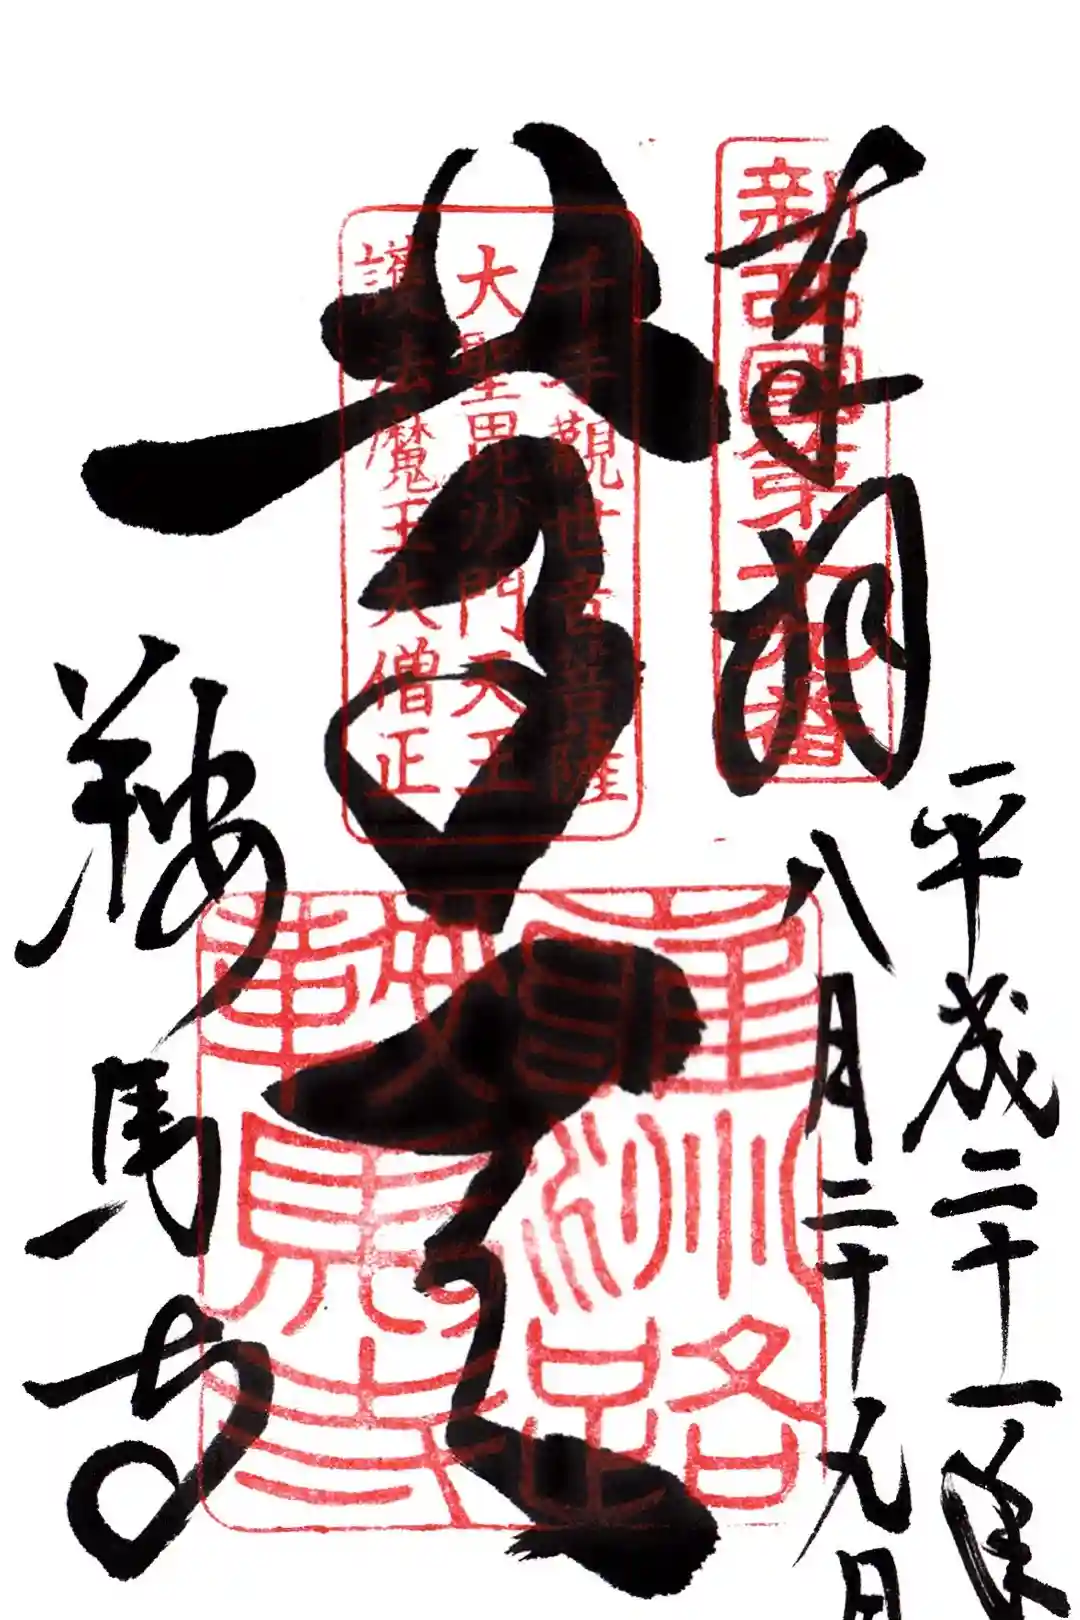 平成二十一年
八月二十九日
奉拝
新西國第十九番
尊天
千手觀世音菩薩
大聖毘沙門天王
護法魔王大僧正
雍州路
鞍馬寺
鞍馬寺